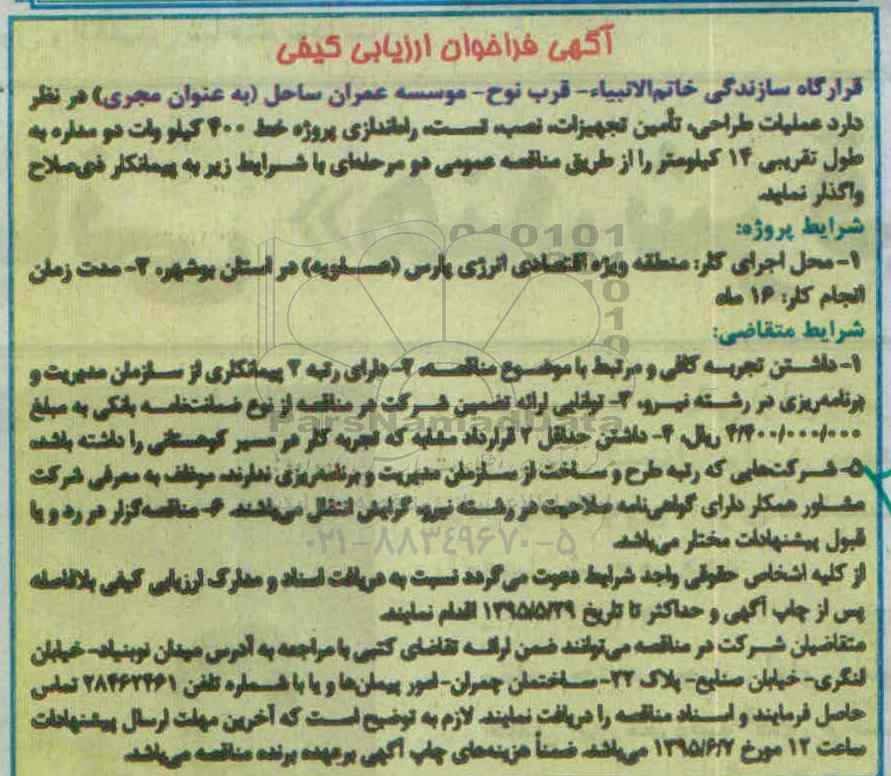 آگهی فراخوان ارزیابی کیفی
قرارگاه سازندگی خاتم‌الانبیاء- قرب نوح- موسسه عمران ساحل (به عنوان مجری) در نظر
دارد عملیات طراحی، تأمین تجهیزات، نصب، تست، راه‌اندازی پروژه خط ۴۰۰ کیلو ولت دو مداره به
طول تقریبی ۱۴ کیلومتر را از طریق مناقصه عمومی دو مرحله‌ای با شرایط زیر به پیمانکار ذی‌صلاح
واگذار نماید.
شرایط پروژه:
۱- محل اجرای کار: منطقه ویژه اقتصادی انرژی پارس (عسلویه) در استان بوشهر، ۲- مدت زمان
انجام کار: ۱۶ ماه
شرایط متقاضی:
۱- داشتن تجربه کافی و مرتبط با موضوع مناقصه، ۲- دارای رتبه ۲ پیمانکاری از سازمان مدیریت و
برنامه‌ریزی در رشته نیرو، ۳- توانایی ارائه تضمین شرکت در مناقصه از نوع ضمانتنامه بانکی به مبلغ
ریال، ۴- داشتن حداقل ۲ قرارداد مشابه که تجربه کار در مسیر کوهستانی را داشته باشد،
۵- شرکت‌هایی که رتبه طرح و ساخت از سازمان مدیریت و برنامه‌ریزی ندارند، موظف به معرفی شرکت
مشاور همکار دارای گواهی‌نامه صلاحیت در رشته نیرو، گرایش انتقال می‌باشند. ۶- مناقصه‌گزار در رد و یا
قبول پیشنهادات مختار می‌باشد.
از کلیه اشخاص حقوقی واجد شرایط دعوت می‌گردد نسبت به دریافت اسناد و مدارک ارزیابی کیفی بلافاصله
پس از چاپ آگهی و حداکثر تا تاریخ ۱۳۹۵/۵/۲۹ اقدام نمایند.
متقاضیان شرکت در مناقصه می‌توانند ضمن ارائه تقاضای کتبی با مراجعه به آدرس میدان نوبنیاد- خیابان
لنگری- خیابان صنایع- پلاک ۲۲- ساختمان چمران- امور پیمان‌ها و یا با شماره تلفن ۲۸۴۶۲۴۶۱ تماس
حاصل فرمایند و اسناد مناقصه را دریافت نمایند. لازم به توضیح است که آخرین مهلت ارسال پیشنهادات
ساعت ۱۲ مورخ ۱۳۹۵/۶/۷ می‌باشد. ضمناً هزینه‌های چاپ آگهی برعهده برنده مناقصه می‌باشد.
ParsNamadData
۰۲۱-۸۸۳۴۹۶۷۰-۵